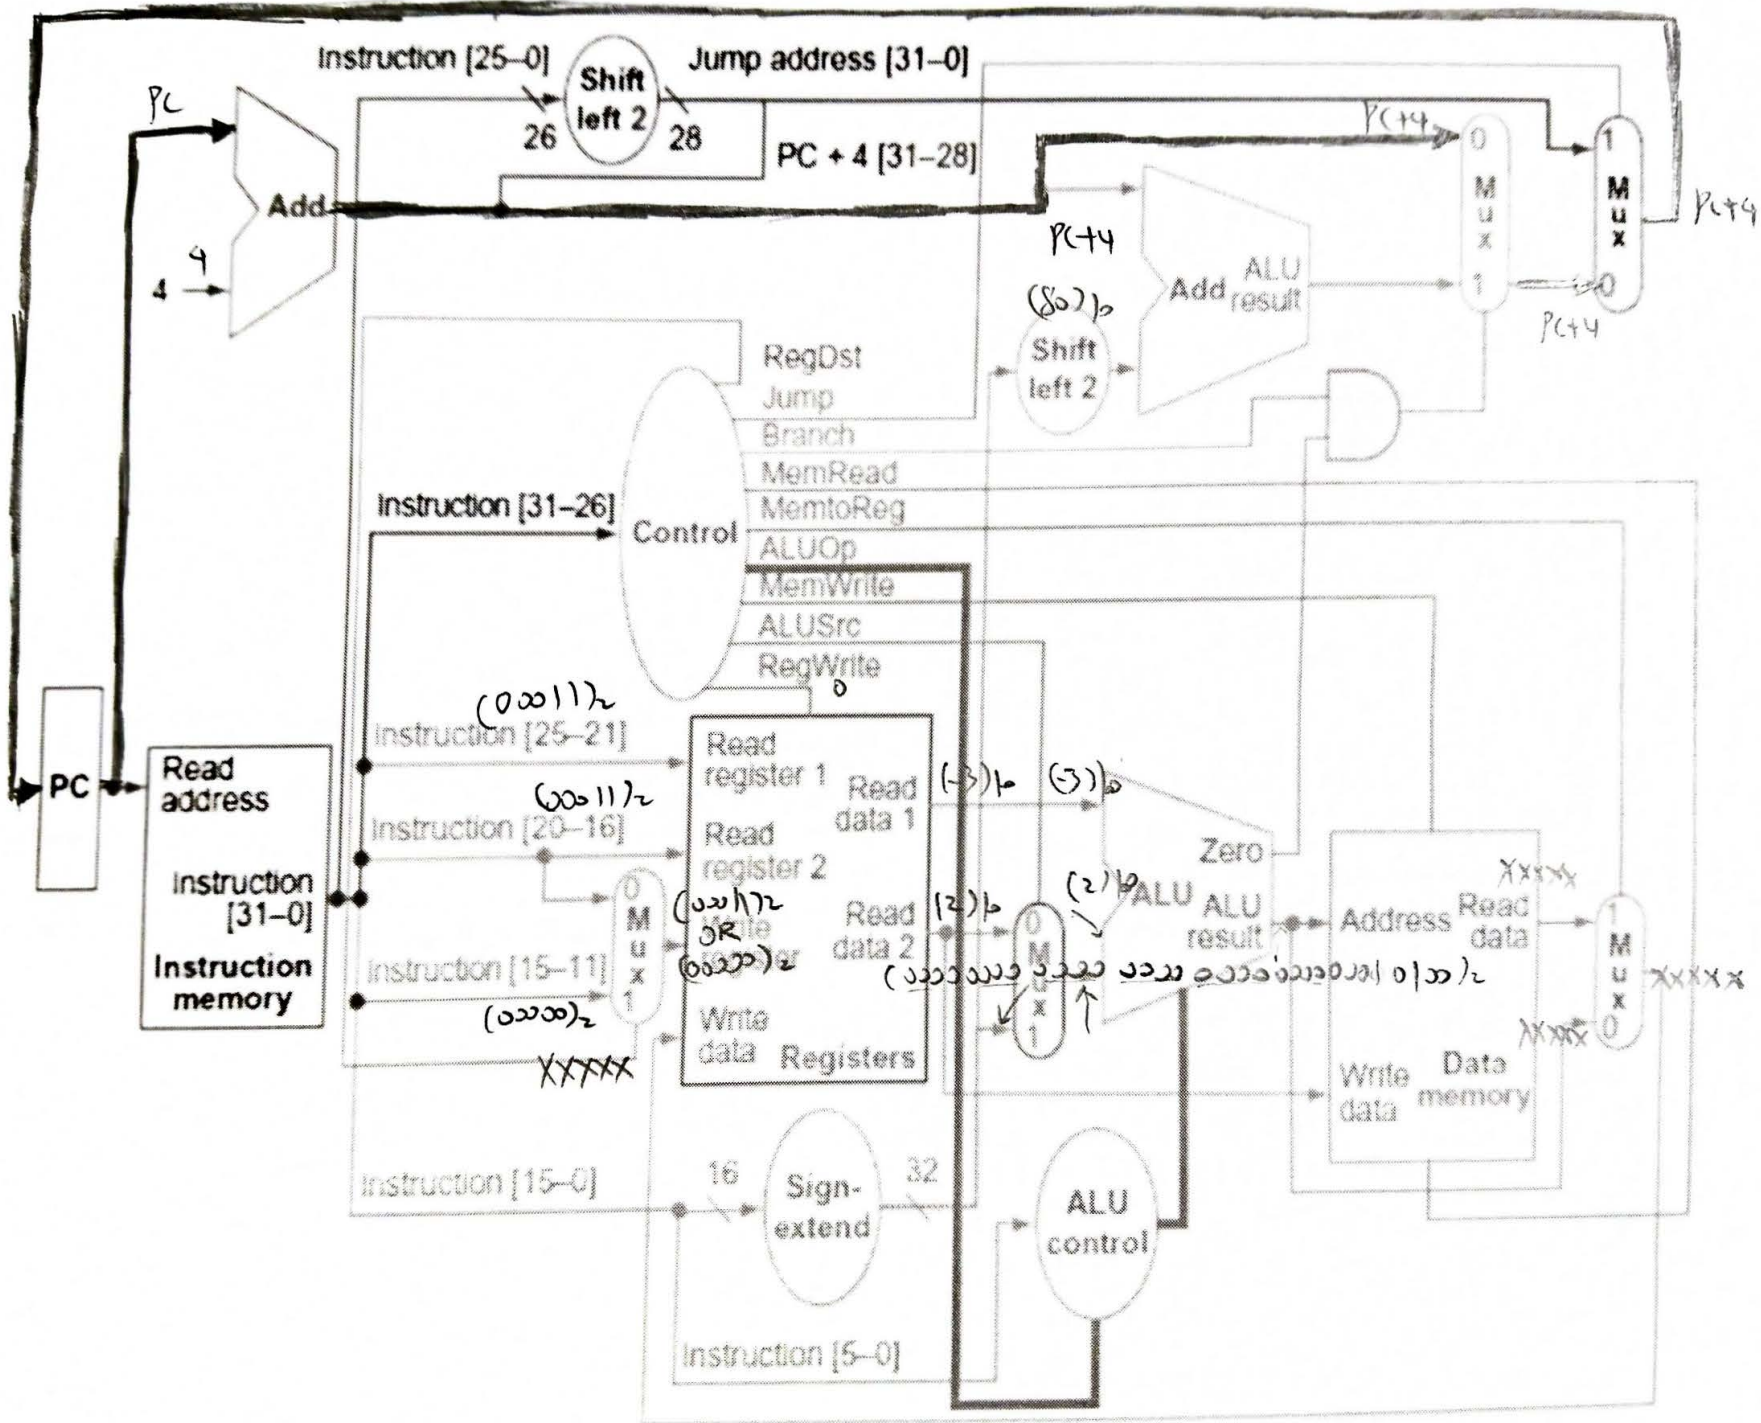 Instruction [25–0]
Shift
left 2
Jump address [31–0]
26
28
PC + 4 [31–28]
PC
Add
4
4
PC+4
0
M
u
x
1
1
M
u
x
0
PC+4
PC+4
PC+4
Add
ALU
result
Shift
left 2
RegDst
Jump
Branch
MemRead
MemtoReg
ALUOp
MemWrite
ALUSrc
RegWrite
0
Instruction [31–26]
Control
PC
Read
address
Instruction
[31–0]
Instruction
memory
(00011)2
Instruction [25–21]
(00011)2
Instruction [20–16]
Instruction [15–11]
(00000)2
0
M
u
x
1
XXXXX
Read
register 1
Read
register 2
Write
register
(00011)2
OR
(00000)2
Write
data
Registers
Read
data 1
Read
data 2
(-3)10
(-3)10
(2)10
(2)10
0
M
u
x
1
Zero
ALU
ALU
result
Address
Read
data
XXXXX
Write
data
Data
memory
1
M
u
x
0
XXXXX
XXXXX
Instruction [15–0]
16
Sign-
extend
32
ALU
control
Instruction [5–0]